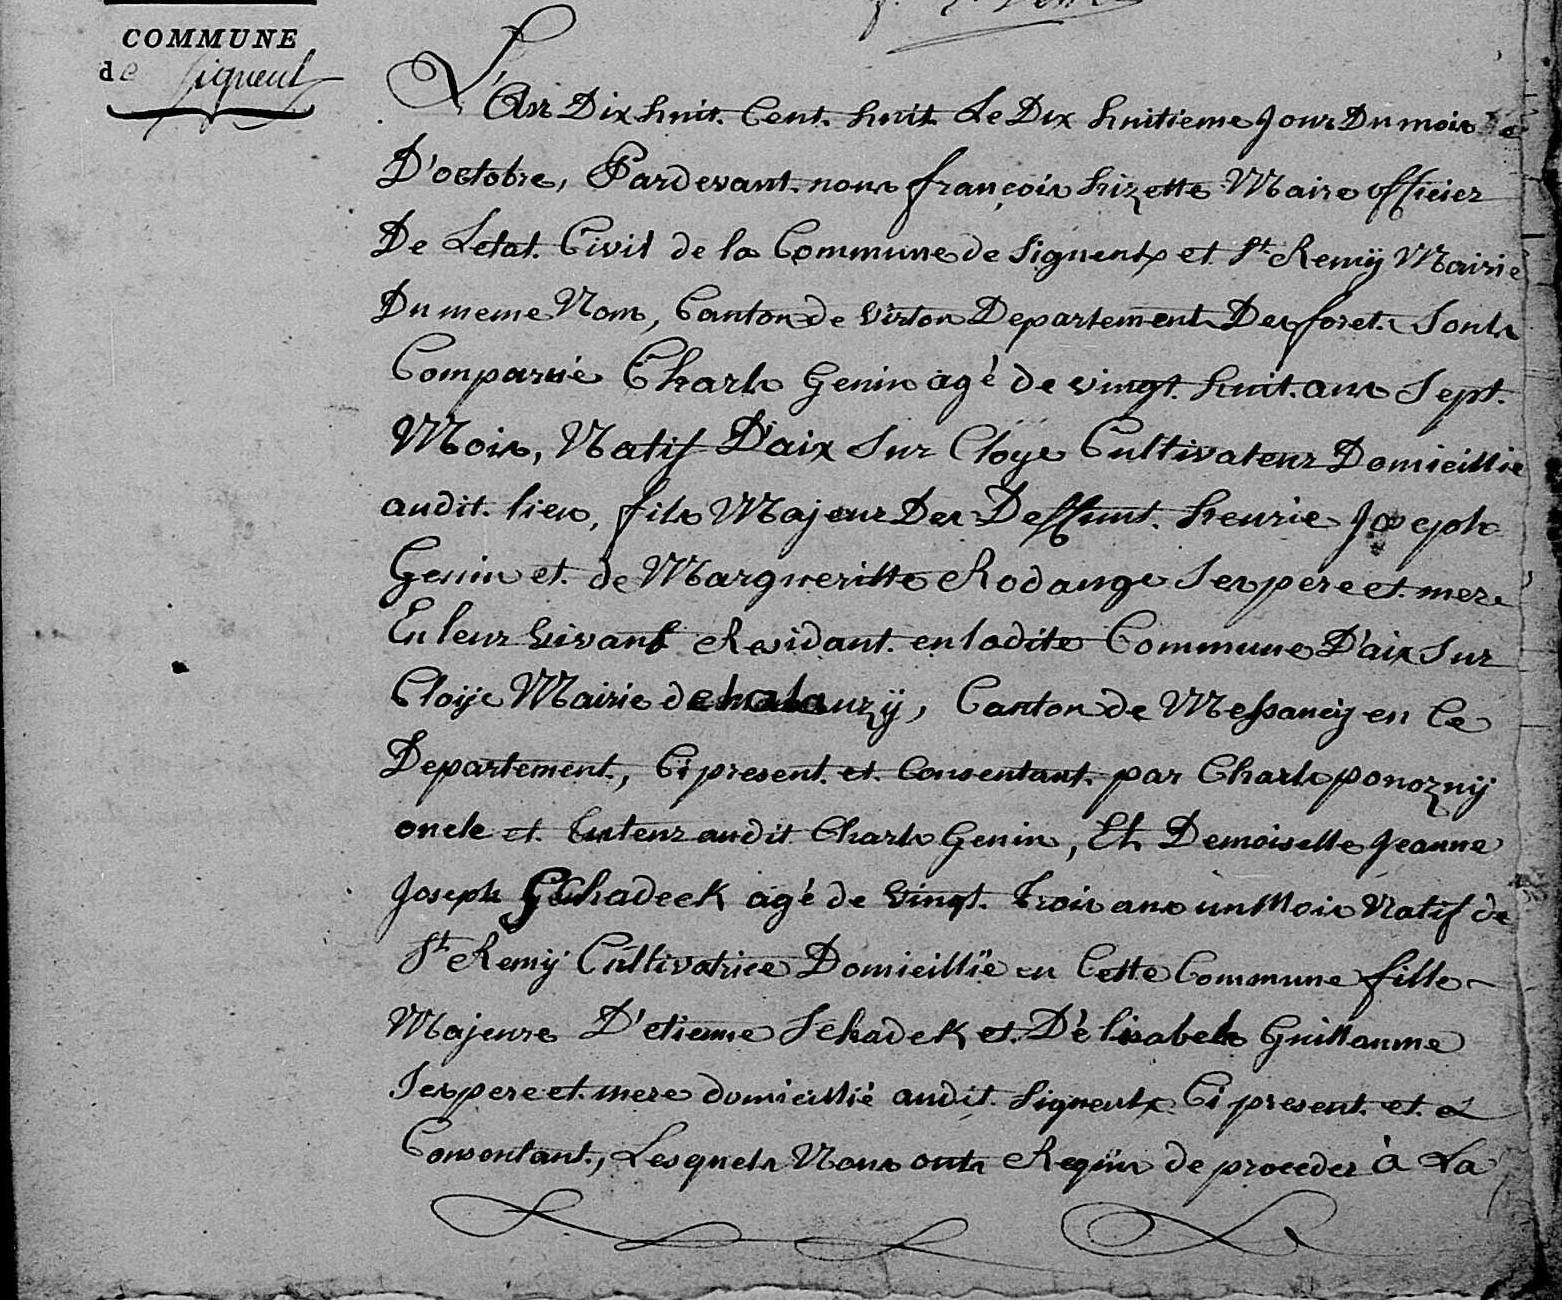 COMMUNE
de Signeulx
L'An Dix huit Cent huit Le Dix huitieme Jour Du mois
D'octobre, Pardevant nous françois hizette Maire officier
De Letat Civil de la Commune de Signeulx et St Remÿ Mairie
Du meme Nom, Canton de Virton Departement Des foret Sonts
Comparue Charls Genin agé de vingt huit ans Sept
Mois, Natif D'aix Sur Cloye Cultivateur Domicillie
audit lieu, fils Majeur Des Deffunt henrie Joseph
Genin et de Margueritte Rodange Ses pere et mere
En leur Vivant Residant en ladite Commune D'aix Sur
Cloÿe Mairie de halanzÿ, Canton de Messancÿ en Ce
Departement, Ci present et Consentant par Charls ponoznÿ
oncle et tuteur audit Charls Genin, Et Demoiselle Jeanne
Joseph Schadeck agé de Vingt Trois ans un Mois Natif de
St Remÿ Cultivatrice Domicillie en Cette Commune fille
Majeure D'etienne Schadek et D'élisabeh Guillaume
Ses pere et mere domicillié audit Signeulx Ci present et
Consentant, Lesquels Nous onts Requis de proceder à La